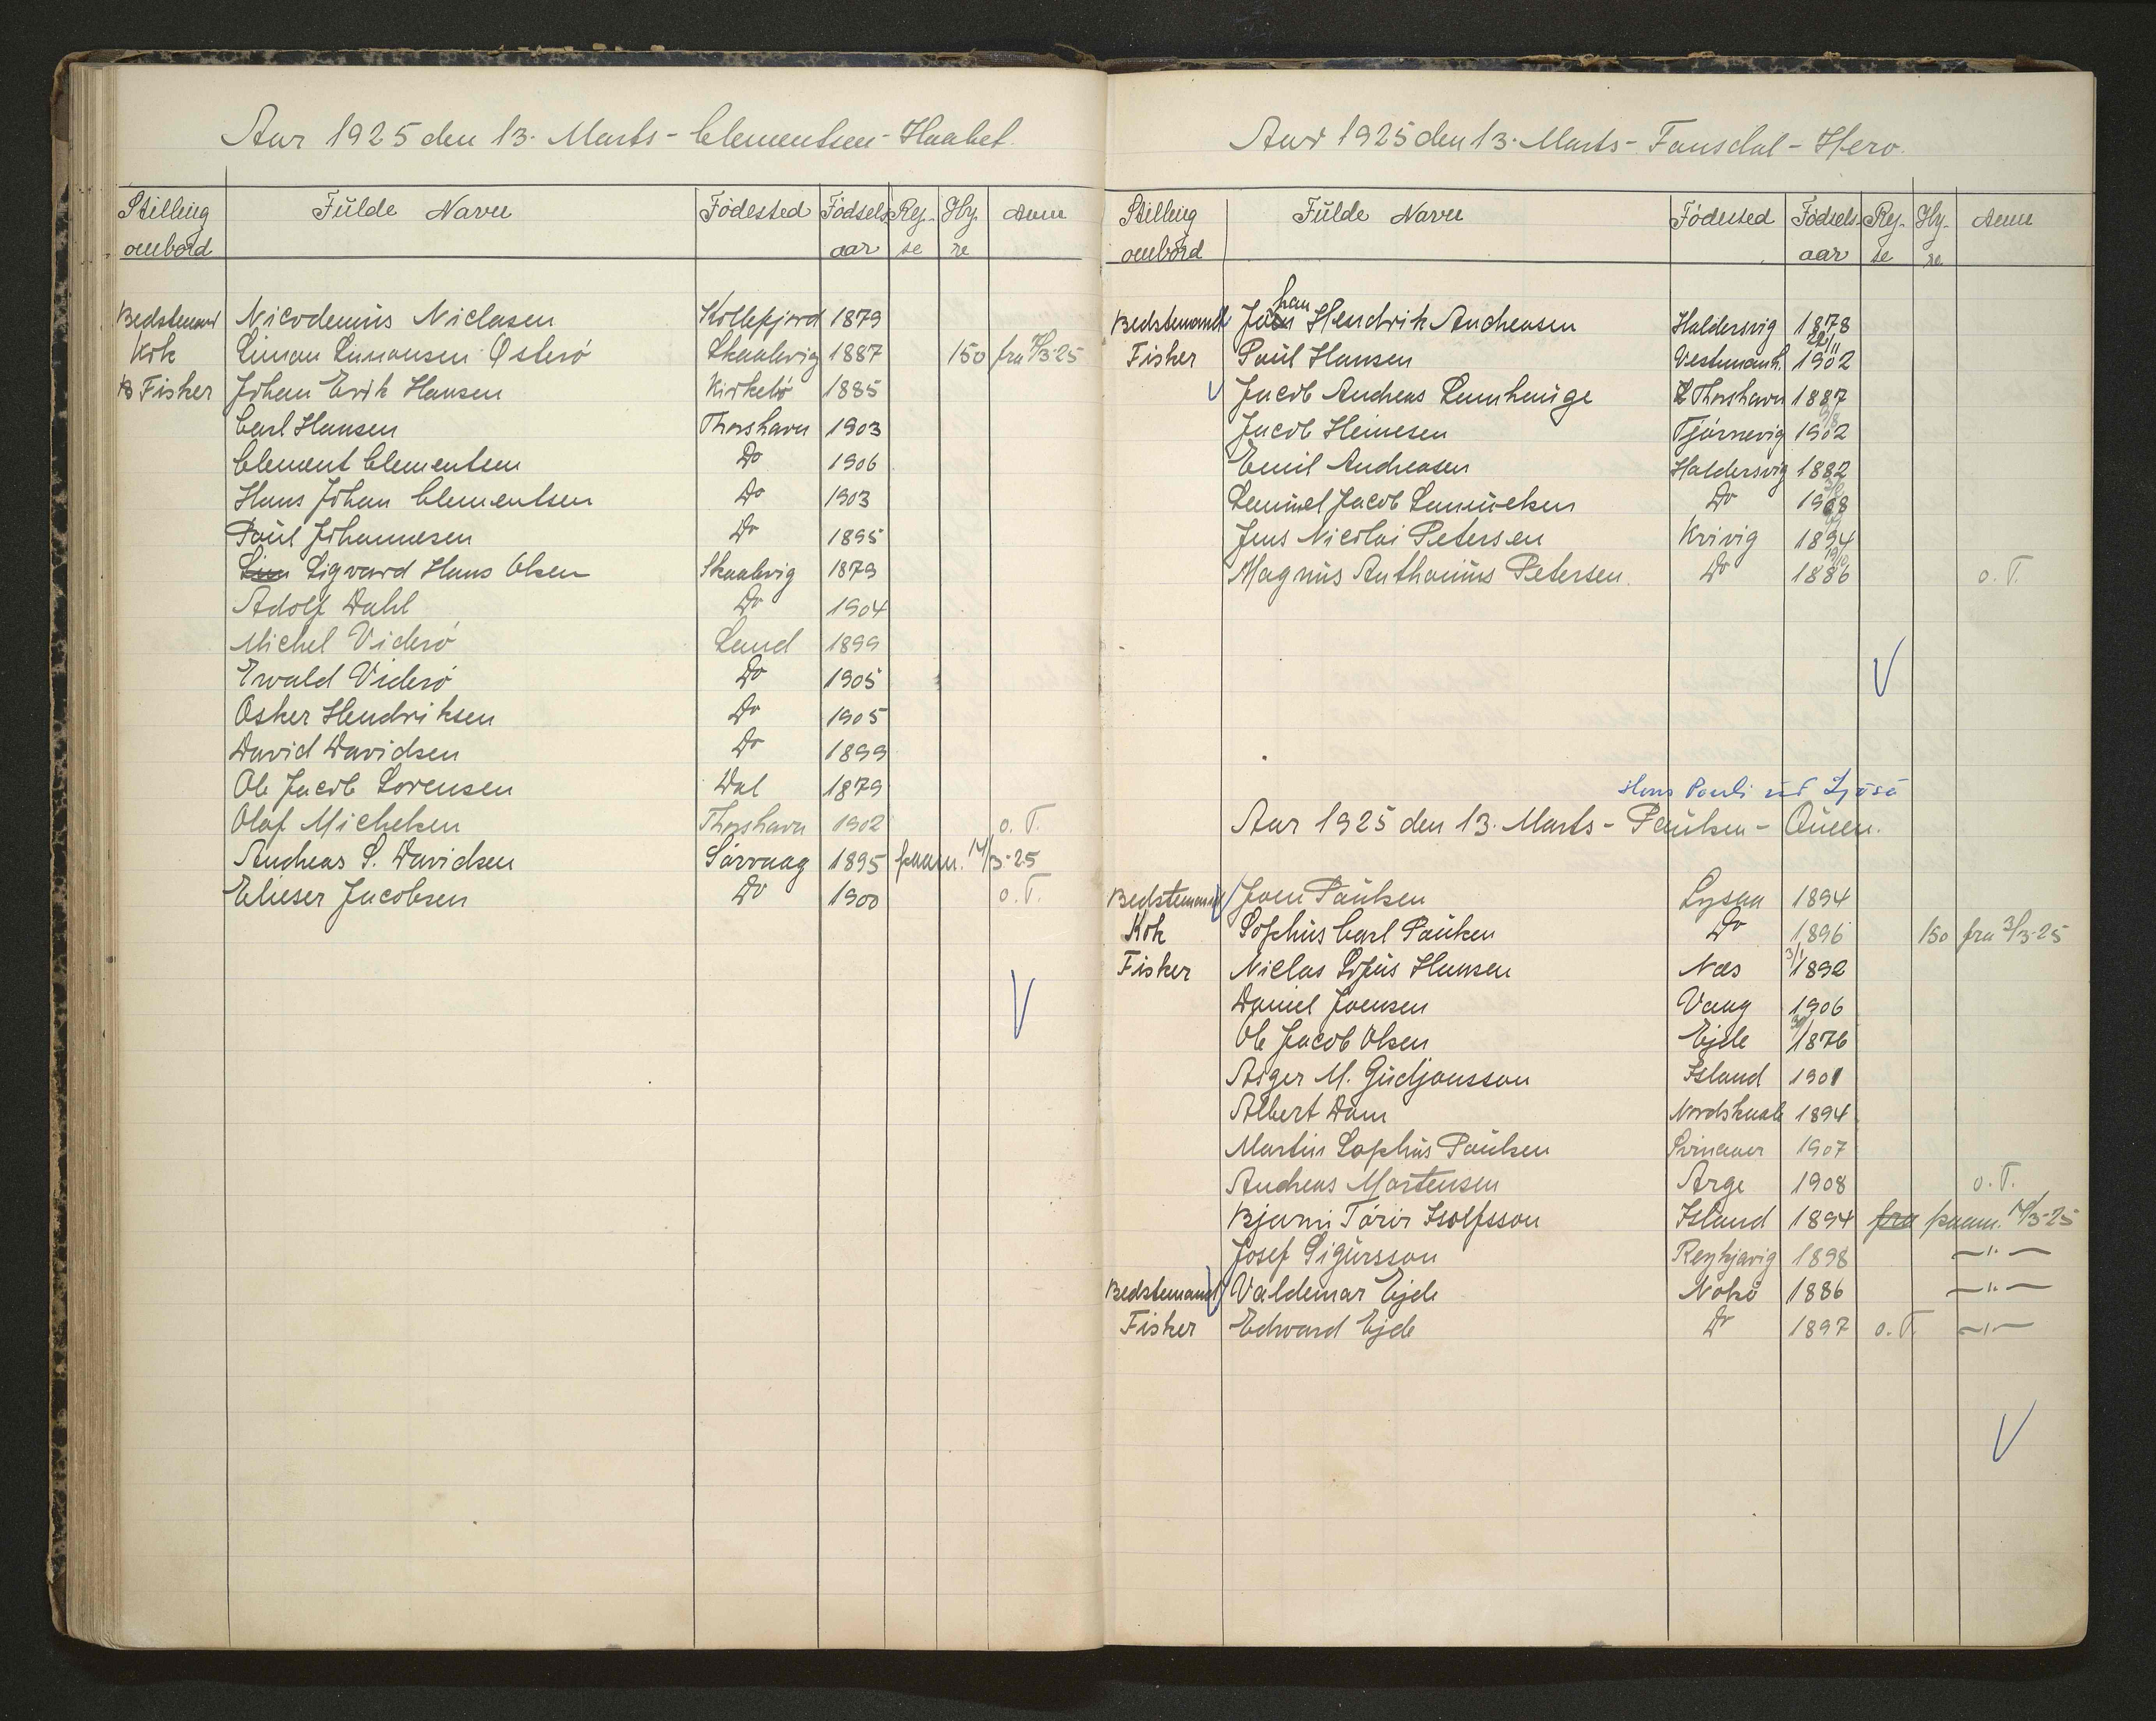 Aar 1925 den 13. Marts - Clementsen - Haabet.
Stilling ombord Fulde Navn Födested Födsels aar Rej- se Hy- re Anm
Bedstemand Nicodemus Niclasen Kollefjord 1879
Kok Simon Simonsen Österö Skaalevig 1887 150 fra 3-25
Fisker Johan Erik Hansen Kirkebö 1885
Carl Hansen Thorshavn 1903
Clement Clementsen Do 1906
Hans Johan Clementsen Do 1903
Paul Johannesen Do 1895
Sigvard Hans Olsen Skaalevig 1879
Adolf Dahl Do 1904
Michel Viderö Sand 1899
Evald Viderö Do 1905
Osker Hendriksen Do 1905
David Davidsen Do 1899
Ole Jacob Sorensen Dal 1879
Olaf Michelsen Thorshavn 1902 o. T.
Andreas S. Davidsen Sörvaag 1895 paam. 14/3-25
Elieser Jacobsen Do 1900 o. T.
Aar 1925 den 13. Marts - Fansdal - Hero.
Stilling ombord Fulde Navn Födested Födsels- aar Rej- se Hy- re Anm
Bedstemand Hendrik Andreasen Haldersvig 1878
Fisker Paul Hansen Vestmanh. 22/11 1902
Jacob Andreas Samhuige Thorshavn 1887
Jacob Heinesen Tjörnevig 1902
Emil Andreasen Haldersvig 1882
Samuel Jacob Samuelsen Do 1908
Jens Nicolai Petersen Kvivig 1894
Magnus Anthonius Petersen. Do 19/10 1886 o. T.
Hans Pauli úr Ljósá
Aar 1925 den 13. Marts - Paulsen - Queen.
Bedstemand Joen Paulsen Lysaa 1894
Kok Sophus Carl Paulsen Do 1896 150 fra 3/3-25
Fisker Niclas Sofus Hansen Næs 3/1 1892
Daniel Joensen Vaag 1906
Ole Jacob Olsen Ejde 1876
Asger M. Gudjonsson Island 1901
Albert Dam Nordskaale 1894
Martin Sophus Paulsen Svinaaer 1907
Andreas Mortensen Arge 1908 o. T.
Bjarni Tórir Isolfsson Island 1894 fra paam. 14/3-25
Josef Sigursson Reykjavig 1898 —"—
Bedstemand Valdemar Ejde Nolsö 1886 —"—
Fisker Edvard Ejde Do 1897 o. T. —"—